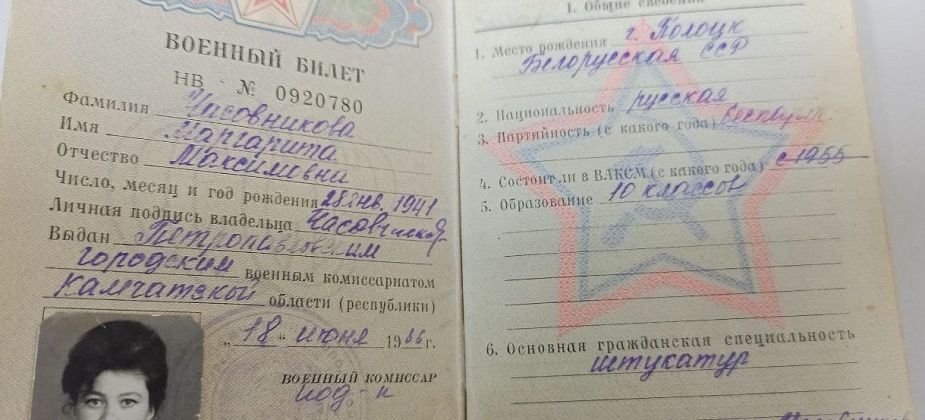 ВОЕННЫЙ БИЛЕТ
НВ № 0920780
Фамилия Часовникова
Имя Маргарита
Отчество Максимовна
Число, месяц и год рождения 28 янв. 1941
Личная подпись владельца
Выдан Петропавловским
городским военным комиссариатом
Камчатской области (республики)
„18" июня 1966 г.
ВОЕННЫЙ КОМИССАР
под-к
1. Общие сведения
1. Место рождения г. Полоцк
Белорусская ССР
2. Национальность русская
3. Партийность (с какого года) беспарт.
4. Состоит ли в ВЛКСМ (с какого года) с 1955
5. Образование 10 классов
6. Основная гражданская специальность
штукатур